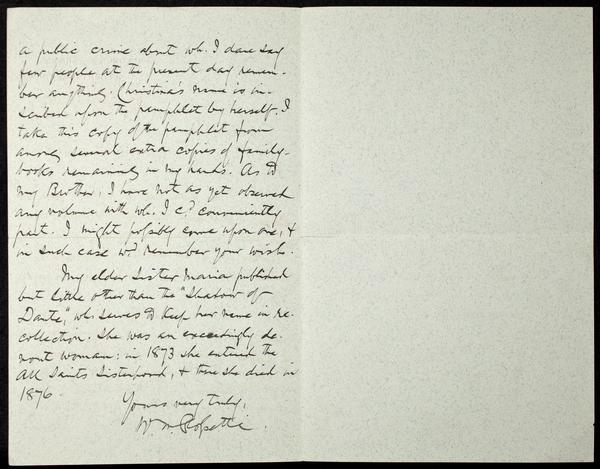 a public crime about wh. I dare say
few people at the present day remem-
ber anything. Christina's name is in-
scribed upon the pamphlet by herself. I
take this copy of the pamphlet from
among several extra copies of family-
books remaining in my hands. As to
my Brother, I have not as yet observed
any volume with wh. I cd. conveniently
part. I might possibly come upon one, &
in such case wd. remember your wish.
My elder Sister Maria published
but little other than the "Shadow of
Dante," wh. serves to keep her name in re-
collection. She was an exceedingly de-
vout woman: in 1873 she entered the
All Saints Sisterhood, & there she died in
1876.
Yours very truly,
W. M. Rossetti.